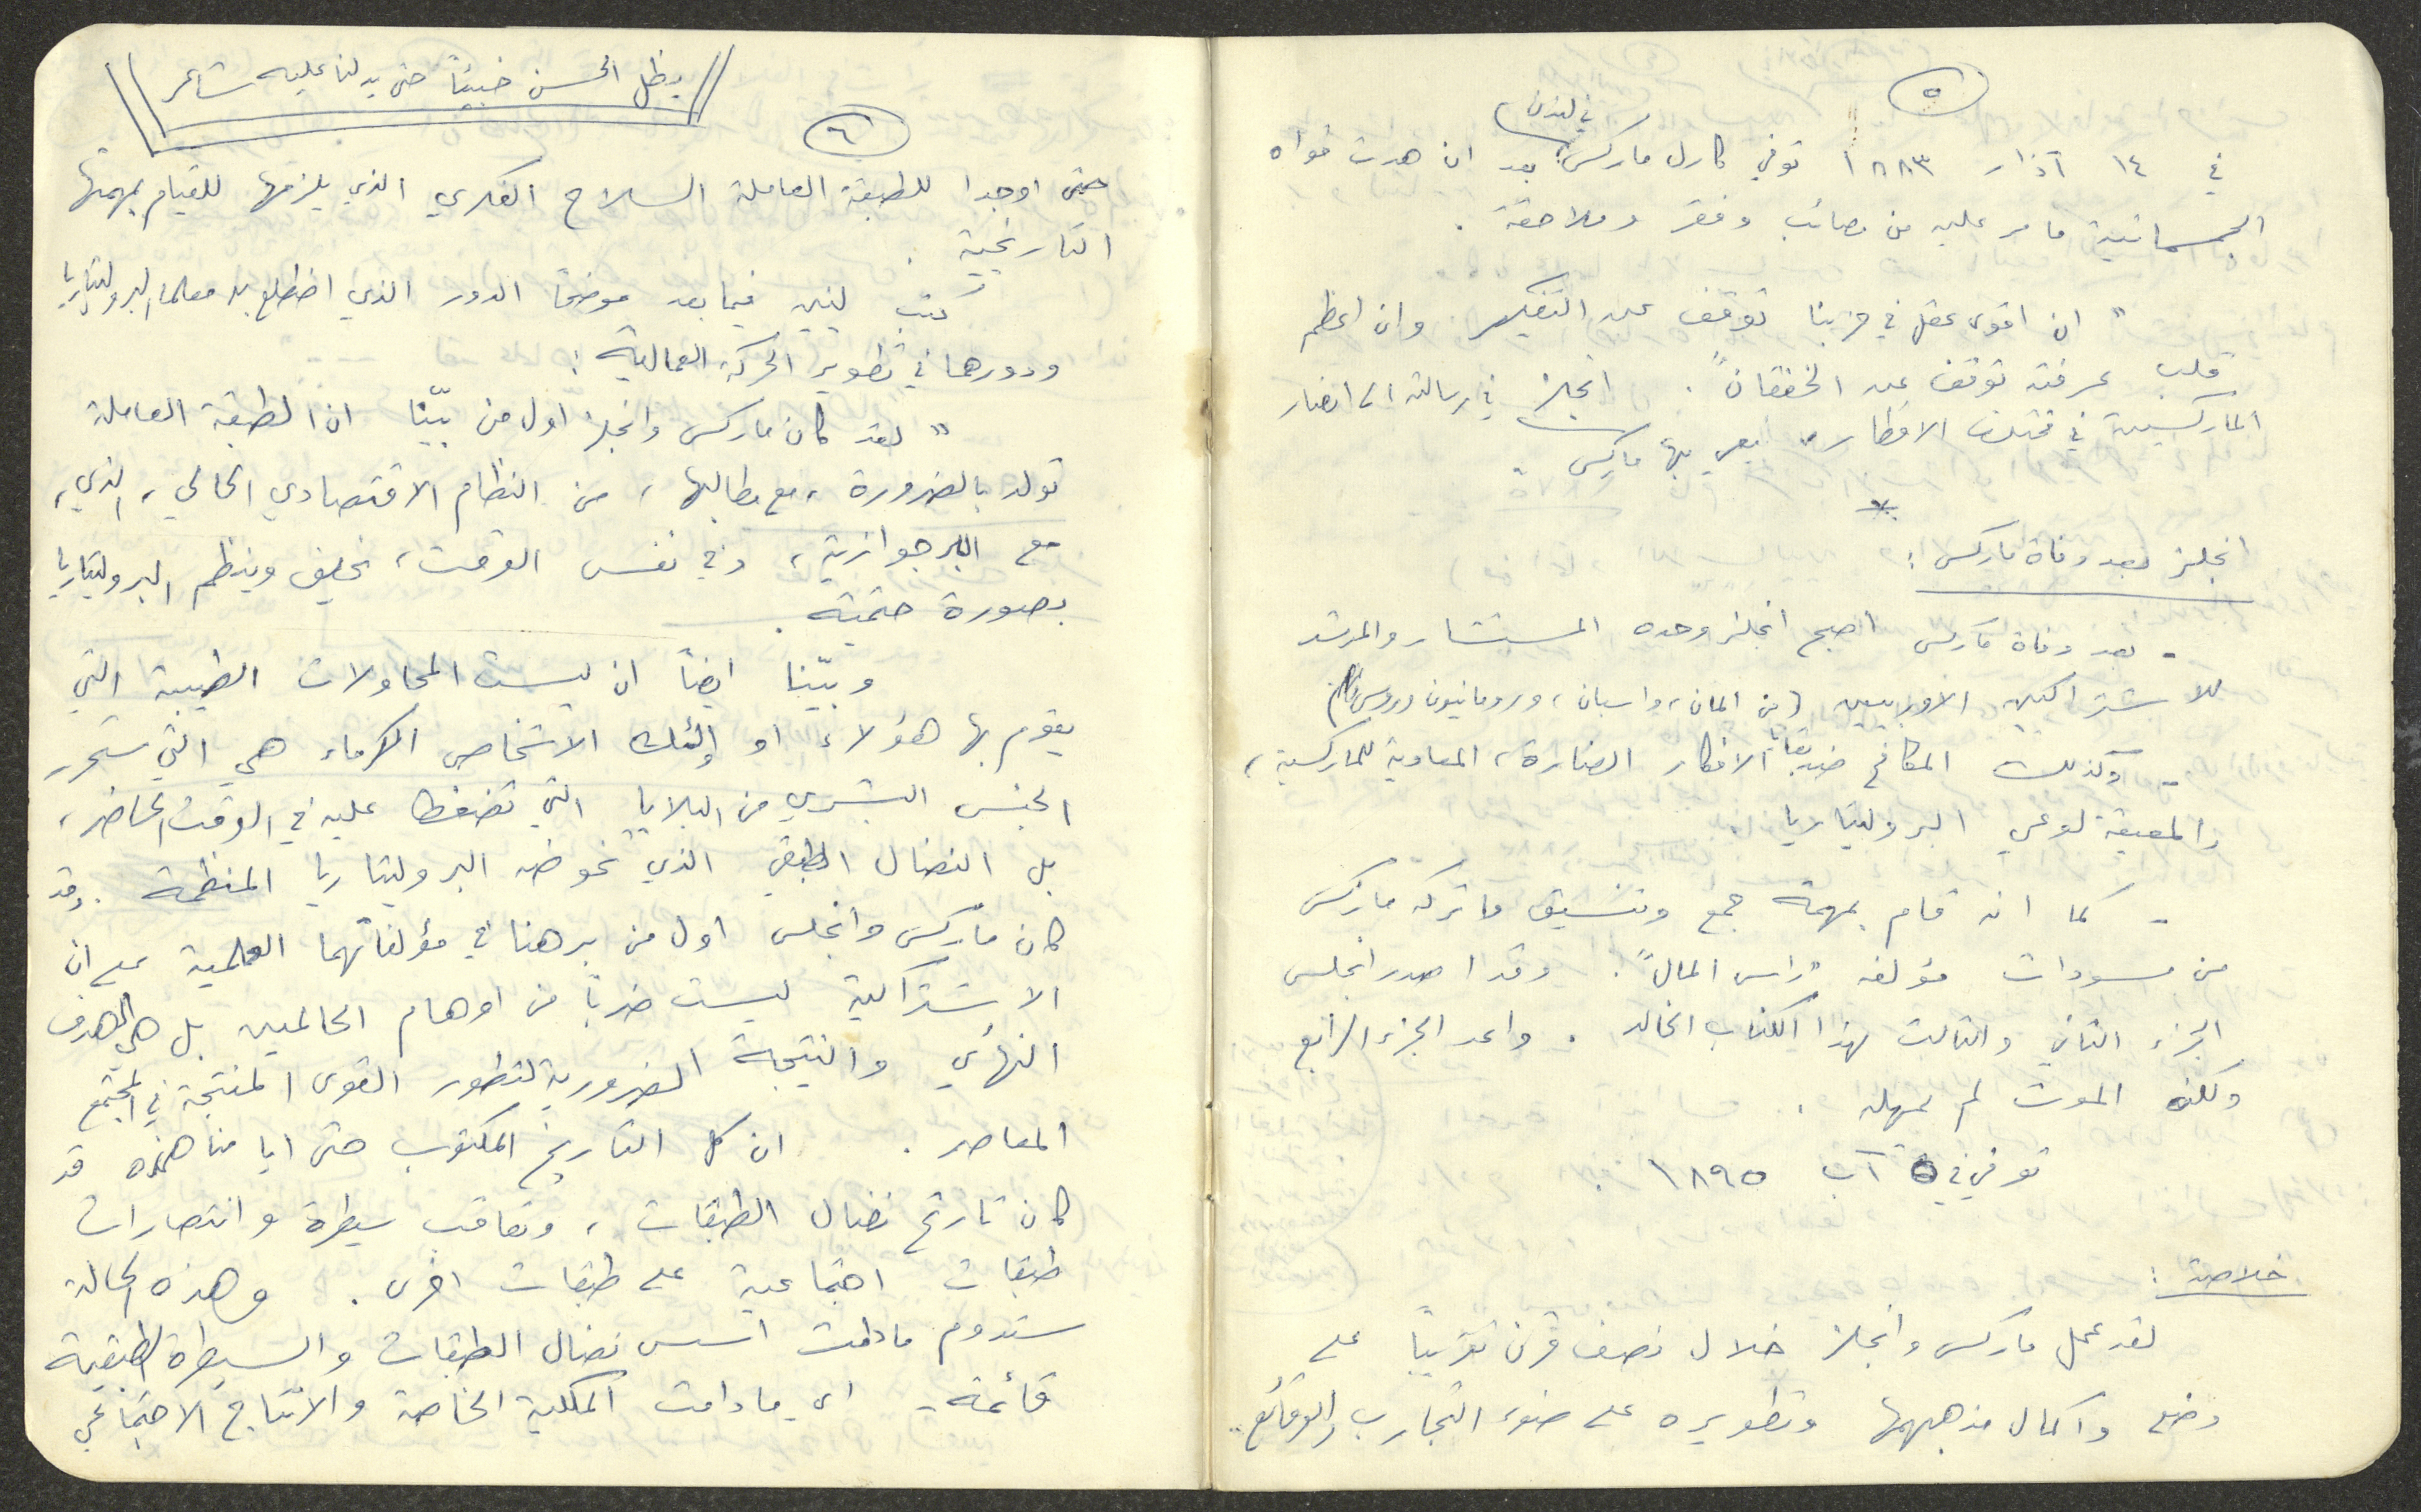 ٥
في ١٤ آذار ١٨٨٣ توفي كارل ماركس في لندن بعد ان هدت قواه
الجسمانية ما مر عليه من مصائب وفقر وملاحقة .
" ان اقوى عقل في حزبنا توقف عن التفكير وان اعظم
قلب عرفته توقف عن الخفقان " . انجلز في رسالته الى انصار
الماركسية في مختلف الاقطار بها ماركس .
*
انجلز بعد وفاة ماركس :
- بعد وفاة ماركس اصبح انجلز وحده المستشار والمرشد
للاشتراكيين الاوربيين ( من المان ، واسبان ، ورومانيون وروس )
- وكذلك المكافح ضد الافكار الضارة ، المعادية للماركسية ،
والمعيقة لوعي البروليتاريا .
- كما انه قام بمهمة جمع وتنسيق ما تركه ماركس
من مسودات مؤلفه " راس المال " . وقد اصدر انجلس
الجزء الثاني والثالث لهذا الكتاب الخالد . واعد الجزء الرابع
ولكن الموت لم يمهله .
توفي في ٥ آب ١٨٩٥ .
خلاصة :
لقد عمل ماركس وانجلز خلال نصف قرن تقريباً على
وضع واكمال مذهبهما وتطويره على ضوء التجارب والوقائع ..
يظل الحسن خبيئاً حتى يدلنا عليه شاعر
٦
حتى اوجدا للطبقة العاملة السلاح الفكري الذي يلزمها للقيام بمهمتها
التاريخية .
كتب لينين فيما بعد موضحاً الدور الذي اضطلع به معلما البروليتاريا
ودورهما في تطوير الحركة العمالية :
" لقد كان ماركس وانجلز اول من بيّنا ان الطبقة العاملة
تولد بالضرورة ، مع مطالبها ، من النظام الاقتصادي الحالي ، الذي ،
مع البرجوازية ، وفي نفس الوقت ، يخلق وينظم البروليتاريا
بصورة حتمية .
وبيّنا ايضاً ان ليست المحاولات الطيبة التي
يقوم بها هؤلاء او اولئك الاشخاص الكرماء هي التي ستحرر
الجنس البشري من البلايا التي تضغط عليه في الوقت الحاضر ،
بل النضال الطبقي الذي تخوضه البروليتاريا المنظمة . وقد
كان ماركس وانجلس اول من برهنا في مؤلفاتهما العلمية على ان
الاشتراكية ليست ضرباً من اوهام الحالمين بل هي الهدف
النهائي والنتيجة الضرورية لتطور القوى المنتجة في المجتمع
المعاصر . ان كل التاريخ المكتوب حتى ايامنا هذه قد
كان تاريخ نضال الطبقات ، وتعاقب سيطرة وانتصارات
طبقات اجتماعية على طبقات اخرى . وهذه الحالة
ستدوم مادامت اسس نضال الطبقات والسيطرة الطبقية
قائمة - اي مادامت الملكية الخاصة والانتاج الاجتماعي